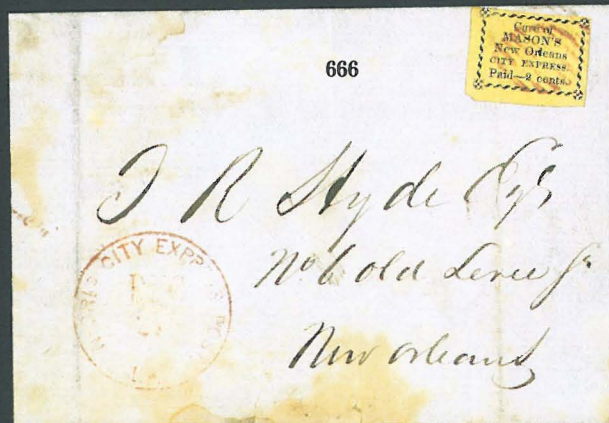 Care of
MASON'S
New Orleans
CITY EXPRESS.
Paid—2 cents.
666
J R Hyde Esqr
No 6 old Levee St
New Orleans
CITY EXPRESS